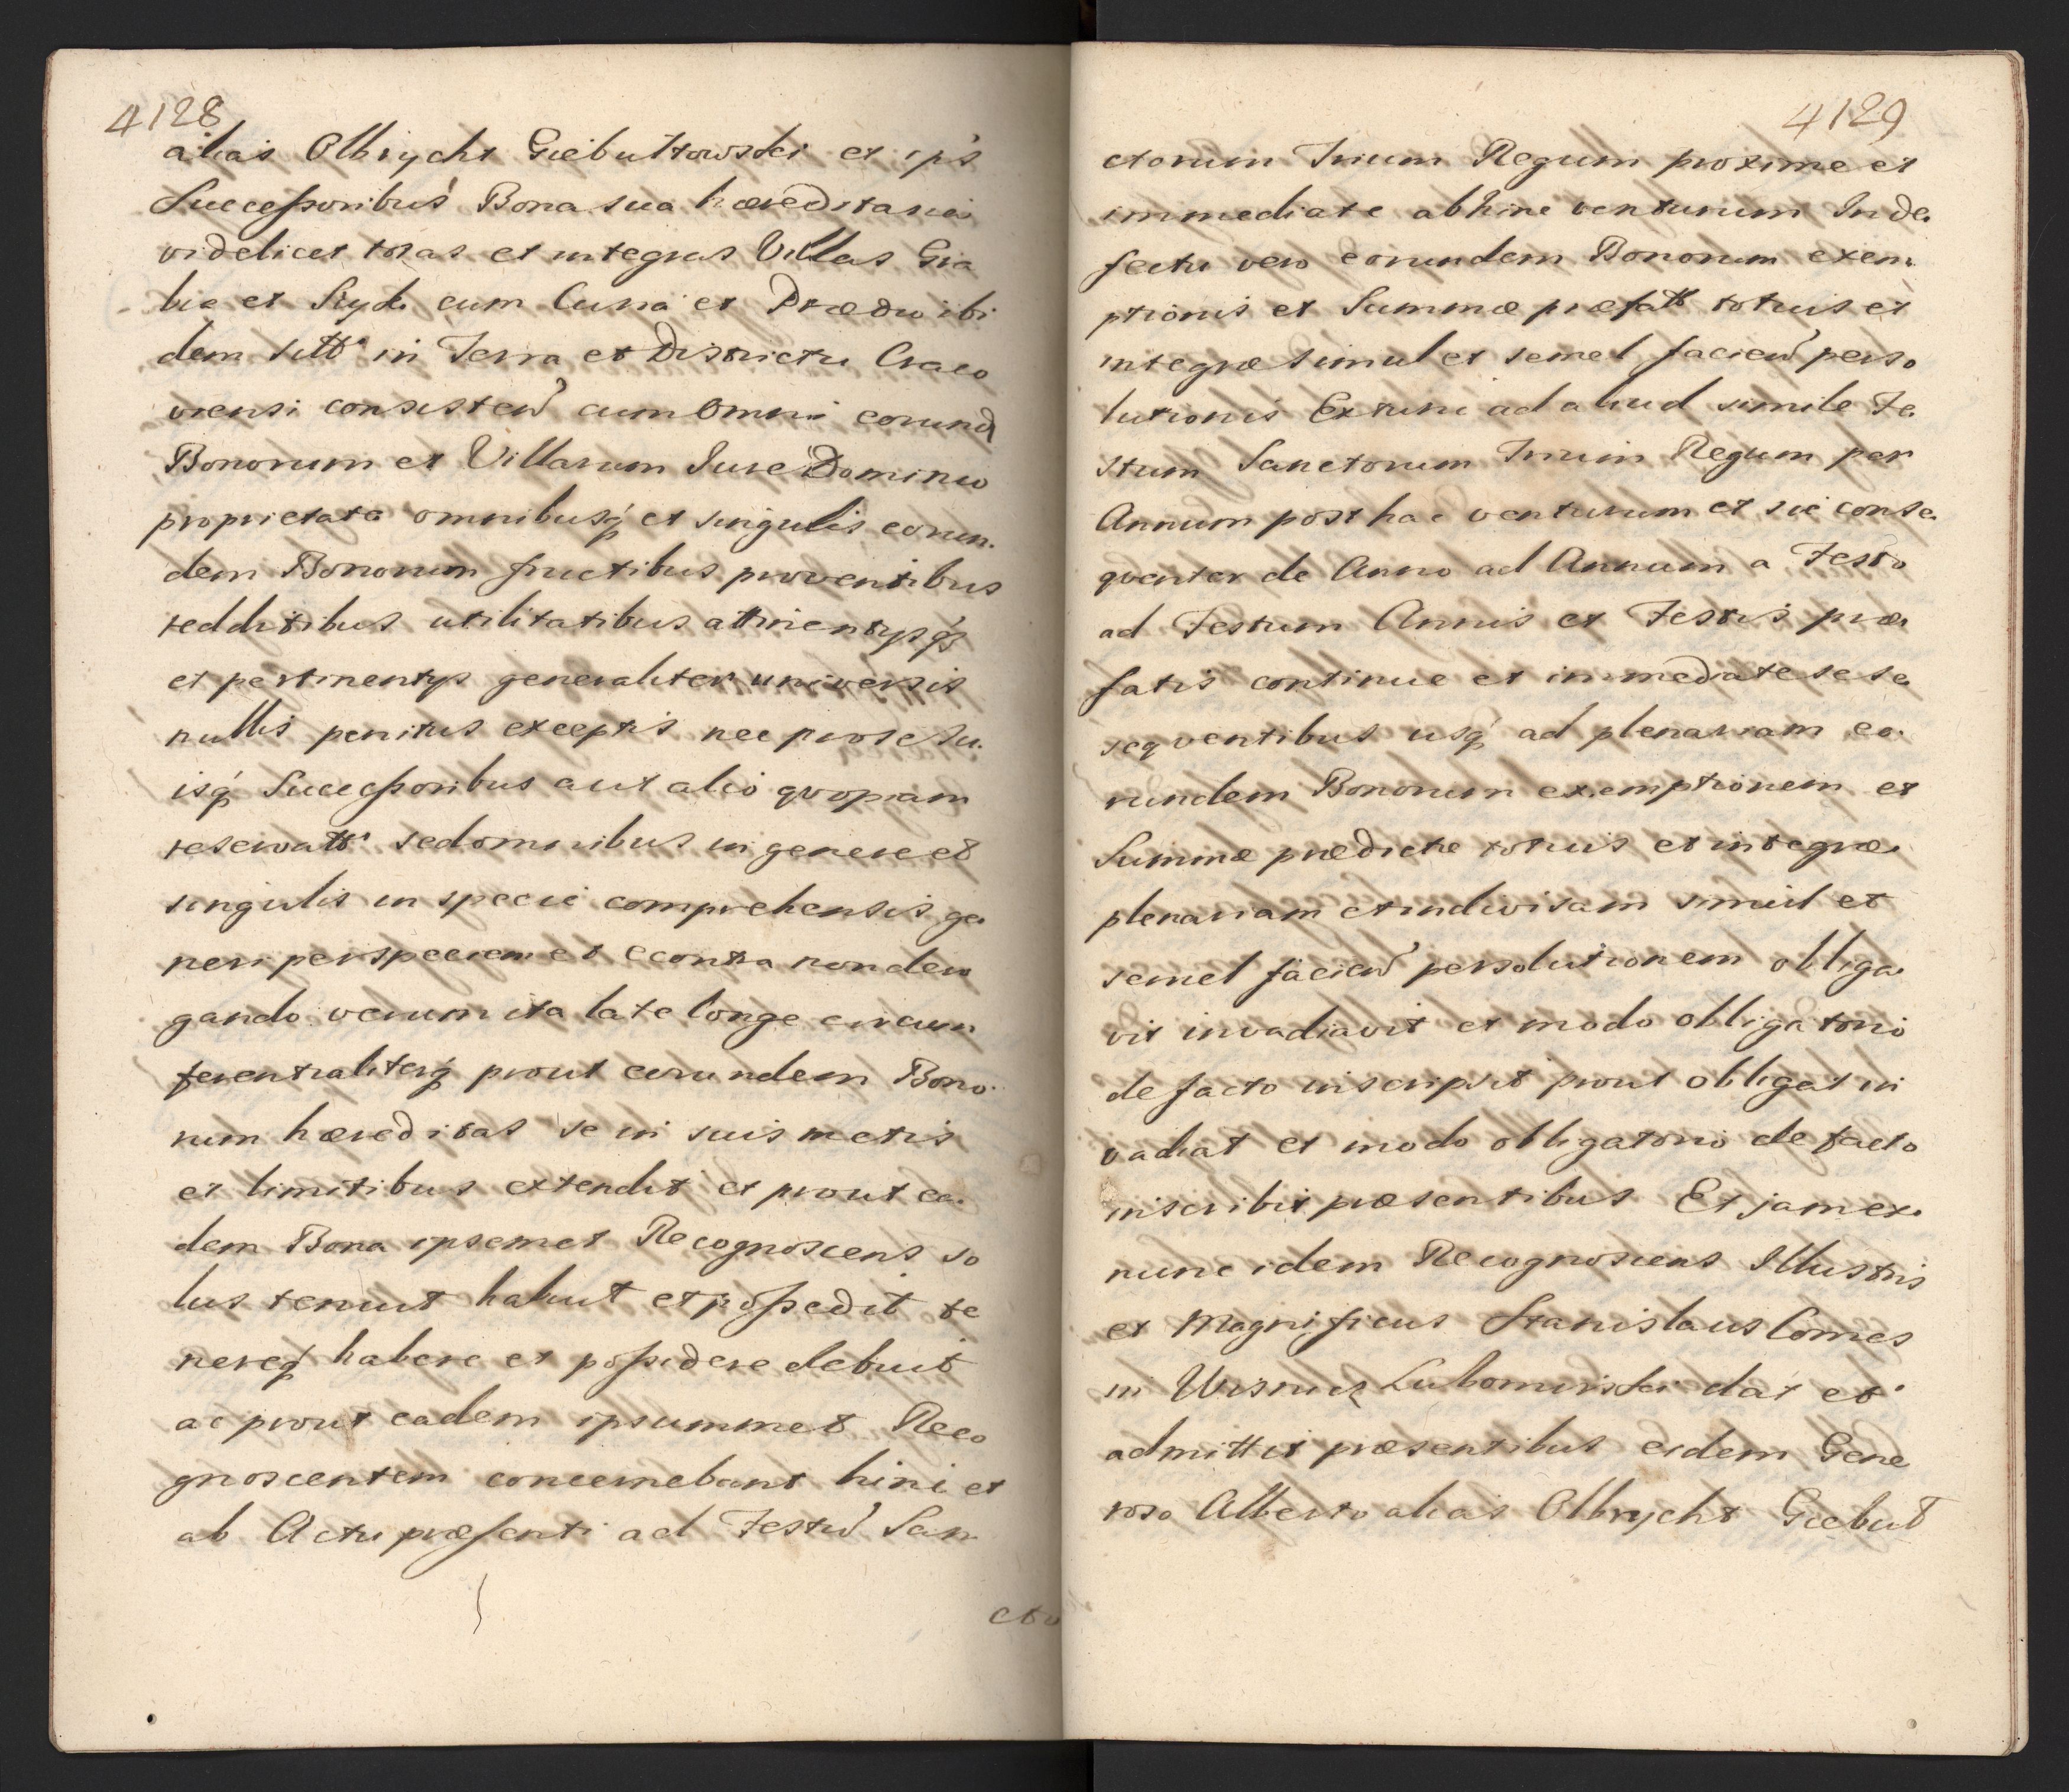 4128
alias Olbrycht Giebułtowski et ips
Successoribus Bona sua hæreditaria
videlicet totas et integras Villas Gra
bie et cum Curia et Prædio ibi
dem sitt in Terra et Districtu Craco
viensi consisten cum omni eorund
Bonorum et Villarum Jure Dominio
proprietate omnibusq et singulis eorun
dem Bonorum fructibus proventibus
redditibus utilitatibus attinentysqs
et pertinentys generaliter universis
nullis penitus exceptis nec pro se su
isq Successoribus aut alio qvopiam
reservatt sed omnibus in genere et
singulis in specie comprehensis ge
neri per speciem et econtra non dero
gando verum ita late longe circum
ferentialiterq prout eorundem Bono
rum hæreditas se in suis metis
et limitibus extendit et prout ea
dem Bona ipsemet Recognoscens so
lus tenuit habuit et possedit te
nereq habere et possidere debuit
ac prout eadem ipsummet Reco
gnoscentem concernebant hinc et
ab Actu præsenti ad Festu San
cto
4129
ctorum Trium Regum proxime et
immediate abhinc venturum In de
fectu vero eorundem Bonorum exem
ptionis et Summæ præfatt totius et
integræ simul et semel facien perso
lutionis Extunc ad aliud simile Fe
stum Sanctorum Trium Regum per
Annum post hac venturum et sic conse
qventer de Anno ad Annum a Festo
ad Festum Annis et Festis præ
fatis continue et immediate se se
seqventibus usq ad plenariam eo
rundem Bonorum exemptionem et
Summæ prædictæ totius et integræ
plenariam et indivisam simul et
semel facien persolutionem obliga
vit invadiavit et modo obligatorio
de facto inscripsit prout obligat in
vadiat et modo obligatorio de facto
inscribit præsentibus Et jam ex
nunc idem Recognoscens Illustris
et Magnificus Stanislaus Comes
in Wisnicz Lubomirski dat et
admittit præsentibus eidem Gene
roso Alberto alias Olbrycht Giebuł